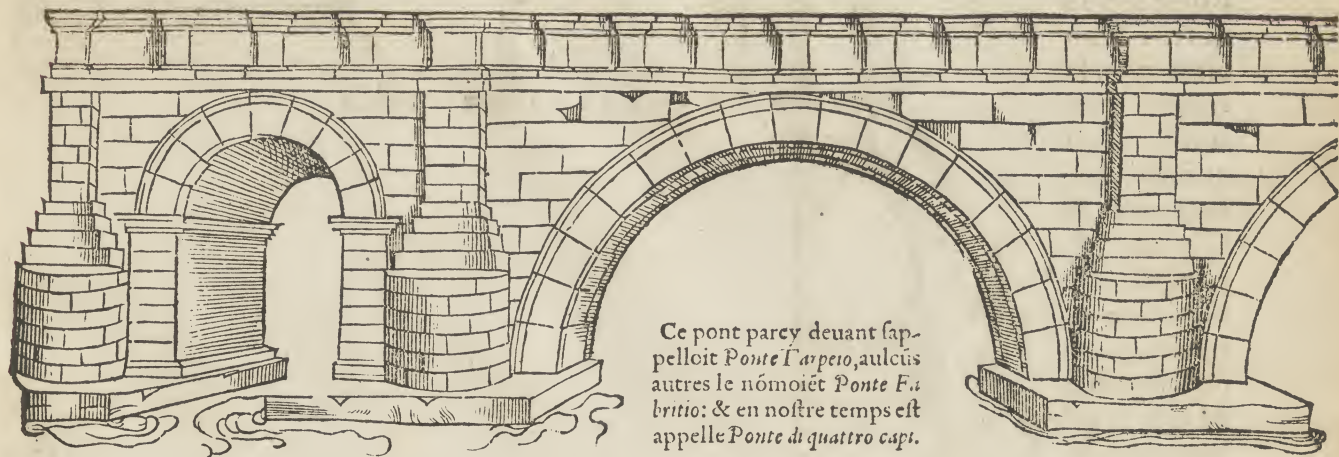 Ce pont parcy deuant ſap-
pelloit Ponte Tarpeio, aulcũs
autres le nõmoiẽt Ponte Fa
britio: & en noſtre temps eſt
appelle Ponte di quattro capi.